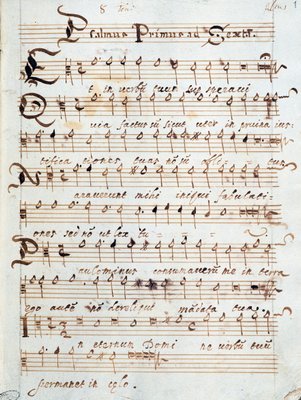 8 Toni 1
Psalmus Primus ad Sextā.
Et in verbū tuum sup speravi
Quia factus sū sicut uter in pruina ius-
tificationes tuas nō sū oblitus
Narraverunt mihi iniqui fabulati-
ones sed nō ut lex tua
Paulominus consumaverūt me in terra
ego autē nō dereliqui mādata tua.
In eternum Domine verbū tuū
permanet in celo.